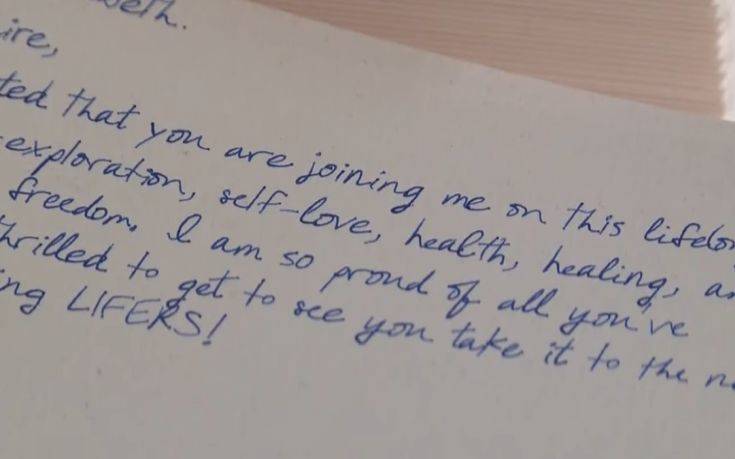 ire,
ted that you are joining me on this lifelon
exploration, self-love, health, healing, an
freedom. I am so proud of all you've
hrilled to get to see you take it to the n
ng LIFERS!